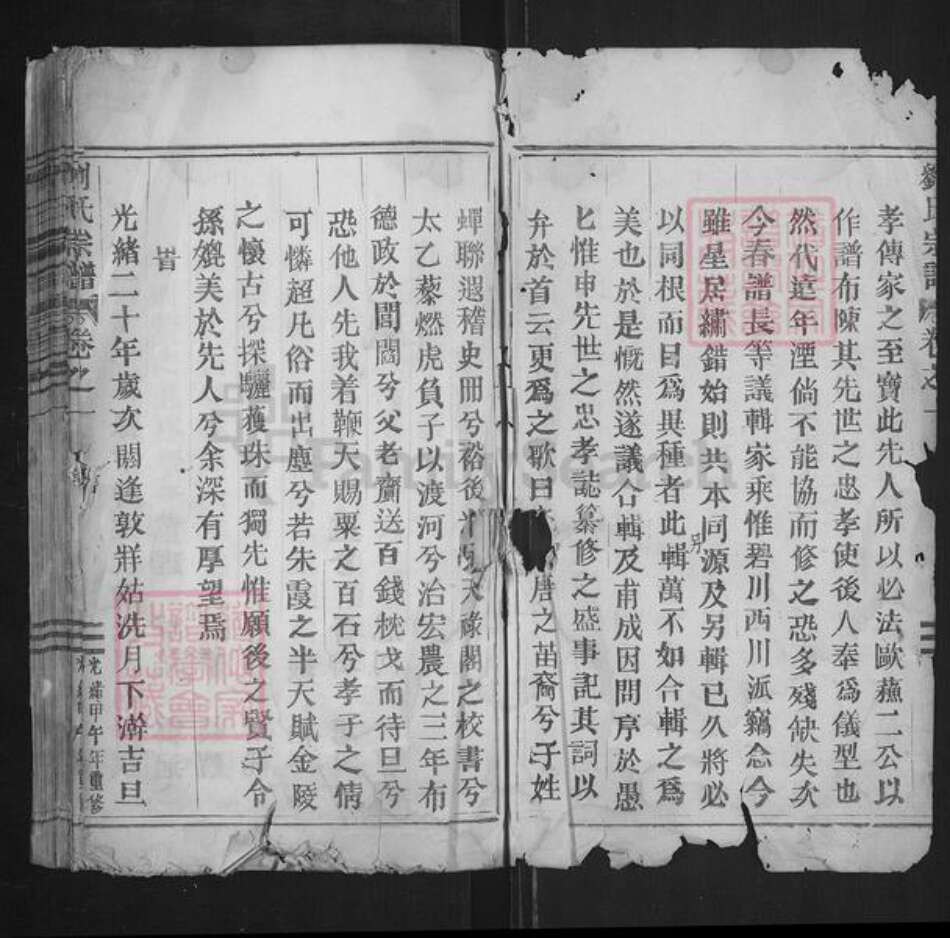 劉氏宗譜 卷之一
孝傳家之至寶此先人所以必法歐蘇二公以
作譜布陳其先世之忠孝使後人奉爲儀型也
然代遠年湮倘不能協而修之恐多殘缺失次
今春譜長等議輯家乘惟碧川西川派竊念今
雖星居繡錯始則共本同源及另輯已久將必
以同根而目爲異種者此輯萬不如合輯之爲
另
美也於是慨然遂議合輯及甫成因問序於愚
匕惟申先世之忠孝誌纂修之盛事記其詞以
弁於首云更爲之歌曰 唐之苗裔兮子姓
蟬聯遐稽史冊兮裕後 天祿閣之校書兮
太乙藜燃虎負子以渡河兮治宏農之三年布
德政於閭閻兮父老齎送百錢枕戈而待旦兮
恐他人先我着鞭天賜粟之百石兮孝子之情
可憐超凡俗而出塵兮若朱霞之半天賦金陵
之懷古兮探驪獲珠而獨先惟願後之賢子令
孫媲美於先人兮余深有厚望焉
旹
光緒二十年歲次閼逢敦牂姑洗月下澣吉旦
劉氏宗譜 卷之一
光緒甲午年重修
FamilySearch